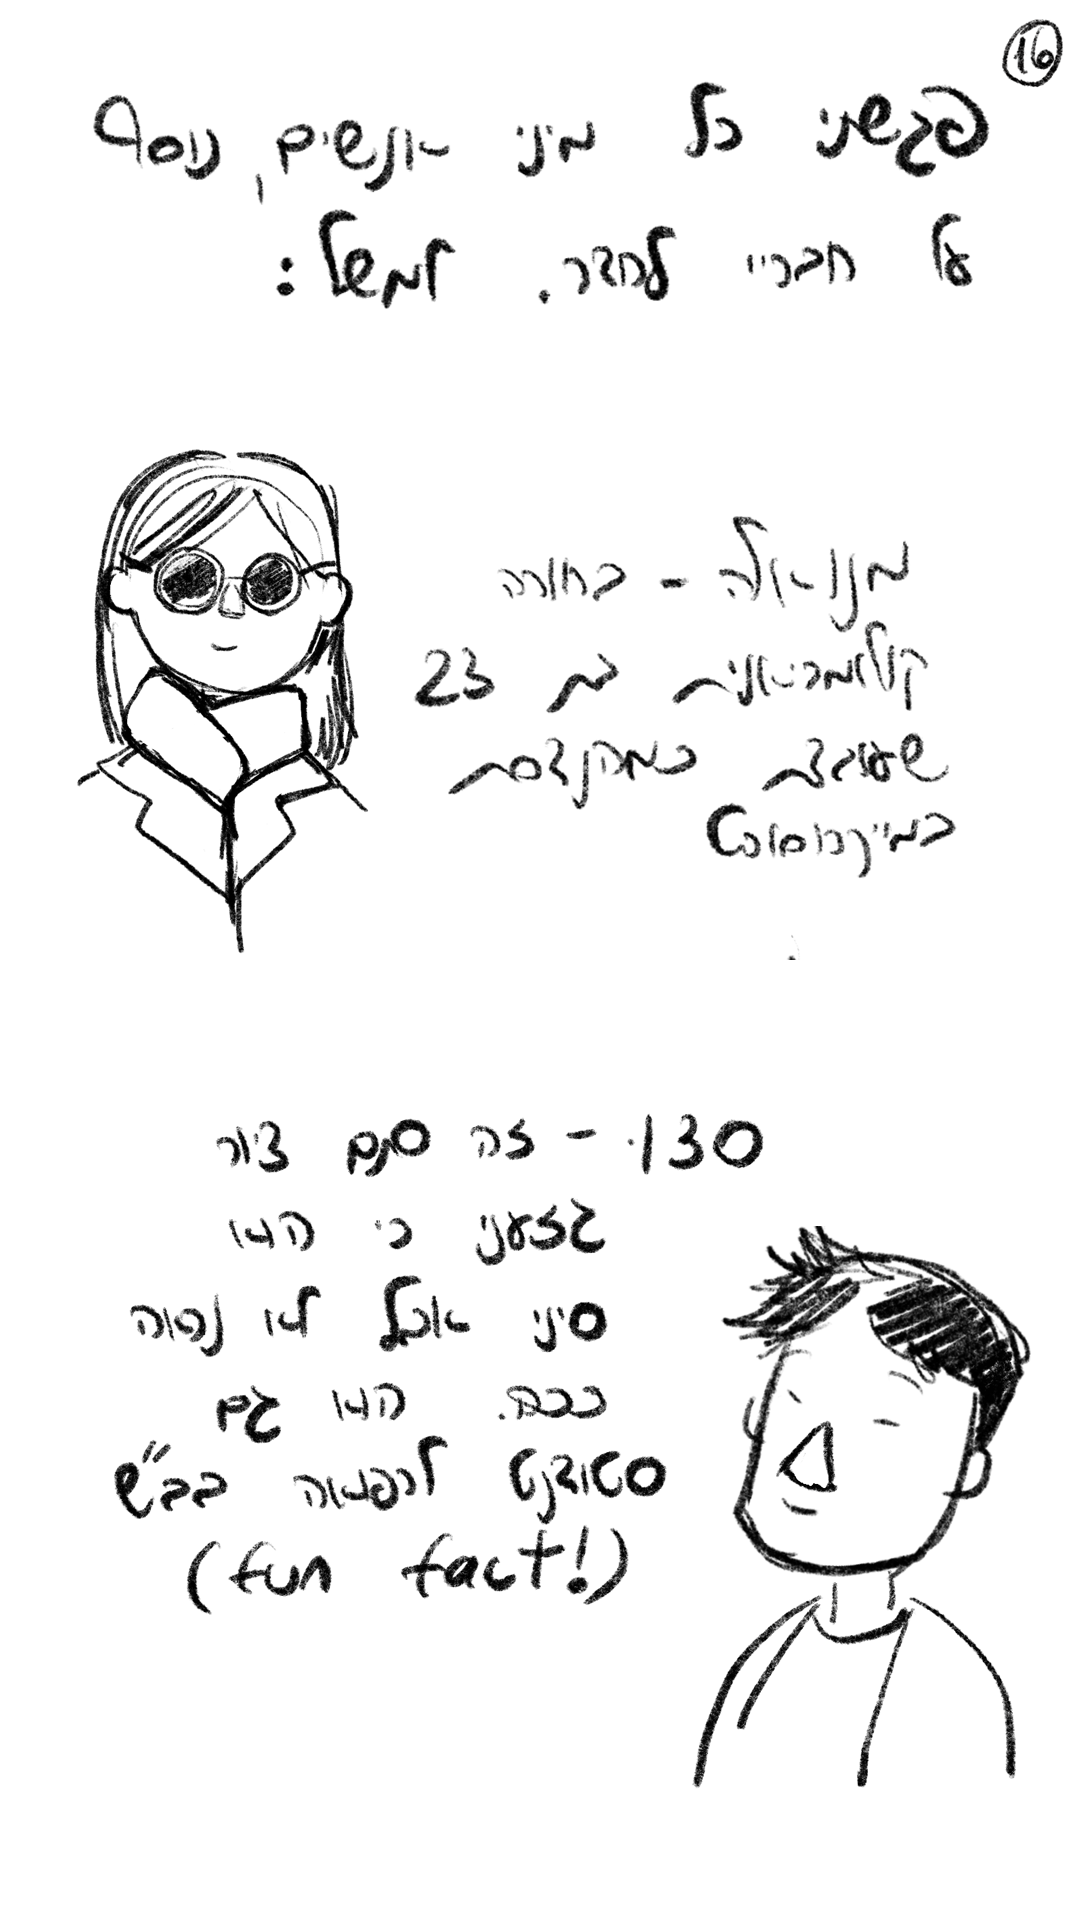 16
פגשתי כל מיני אנשים, נוסף
על חבריי לחדר. למשל:
מנואלה - בחורה
קולומביאנית בת 23
שעובדת כמהנדסת
במייקרוסופט
סנדי - זה סתם ציור
גזעני כי הוא
סיני אבל לא נראה
ככה. הוא גם
סטודנט לרפואה בב"ש
(fun fact!)